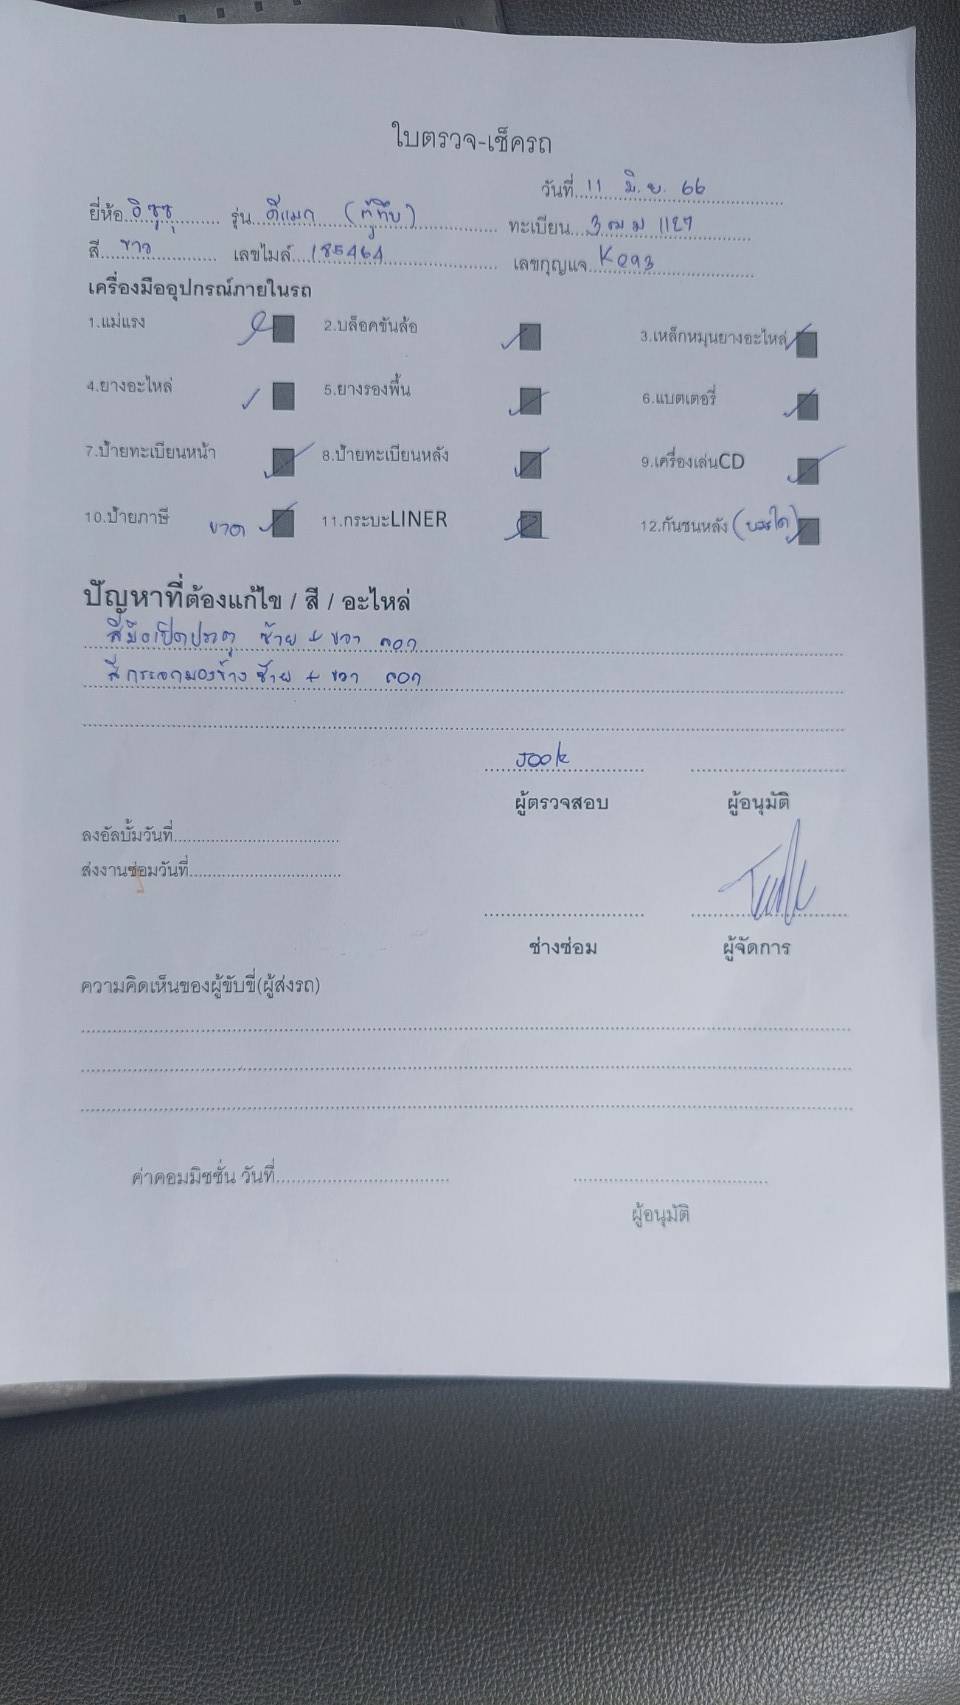 ใบตรวจ-เช็ครถ
วันที่ 11 มิ.ย. 66
ยี่ห้อ อิซูซุ รุ่น ดีแมก (ตู้ทึบ) ทะเบียน 3ฒม 1127
สี ขาว เลขไมล์ 185464 เลขกุญแจ K093
เครื่องมืออุปกรณ์ภายในรถ
1.แม่แรง 2.บล็อคขันล้อ 3.เหล็กหมุนยางอะไหล่
4.ยางอะไหล่ 5.ยางรองพื้น 6.แบตเตอรี่
7.ป้ายทะเบียนหน้า 8.ป้ายทะเบียนหลัง 9.เครื่องเล่นCD
10.ป้ายภาษี ขาด 11.กระบะLINER 12.กันชนหลัง (บรรได)
ปัญหาที่ต้องแก้ไข / สี / อะไหล่
สีมือเปิดประตู ซ้าย + ขวา ลอก
สีกระจกมองข้าง ซ้าย + ขวา ลอก
Jook
ผู้ตรวจสอบ ผู้อนุมัติ
ลงอัลบั้มวันที่
ส่งงานซ่อมวันที่
ช่างซ่อม ผู้จัดการ
ความคิดเห็นของผู้ขับขี่(ผู้ส่งรถ)
ค่าคอมมิชชั่น วันที่
ผู้อนุมัติ